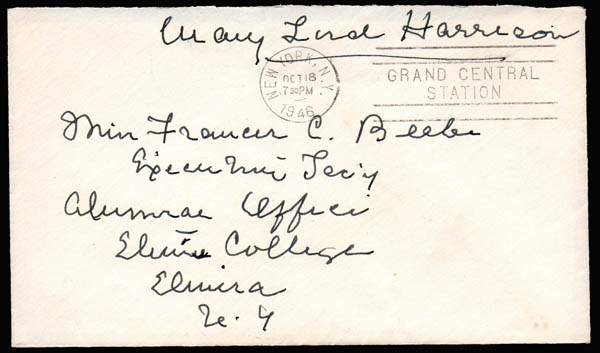 Mary Lord Harrison
NEW YORK, N.Y.
OCT 18
7 30 PM
1946
GRAND CENTRAL
STATION
Miss Frances C. Beebe
Executive Sec'y
Alumnae Office
Elmira College
Elmira
N. Y